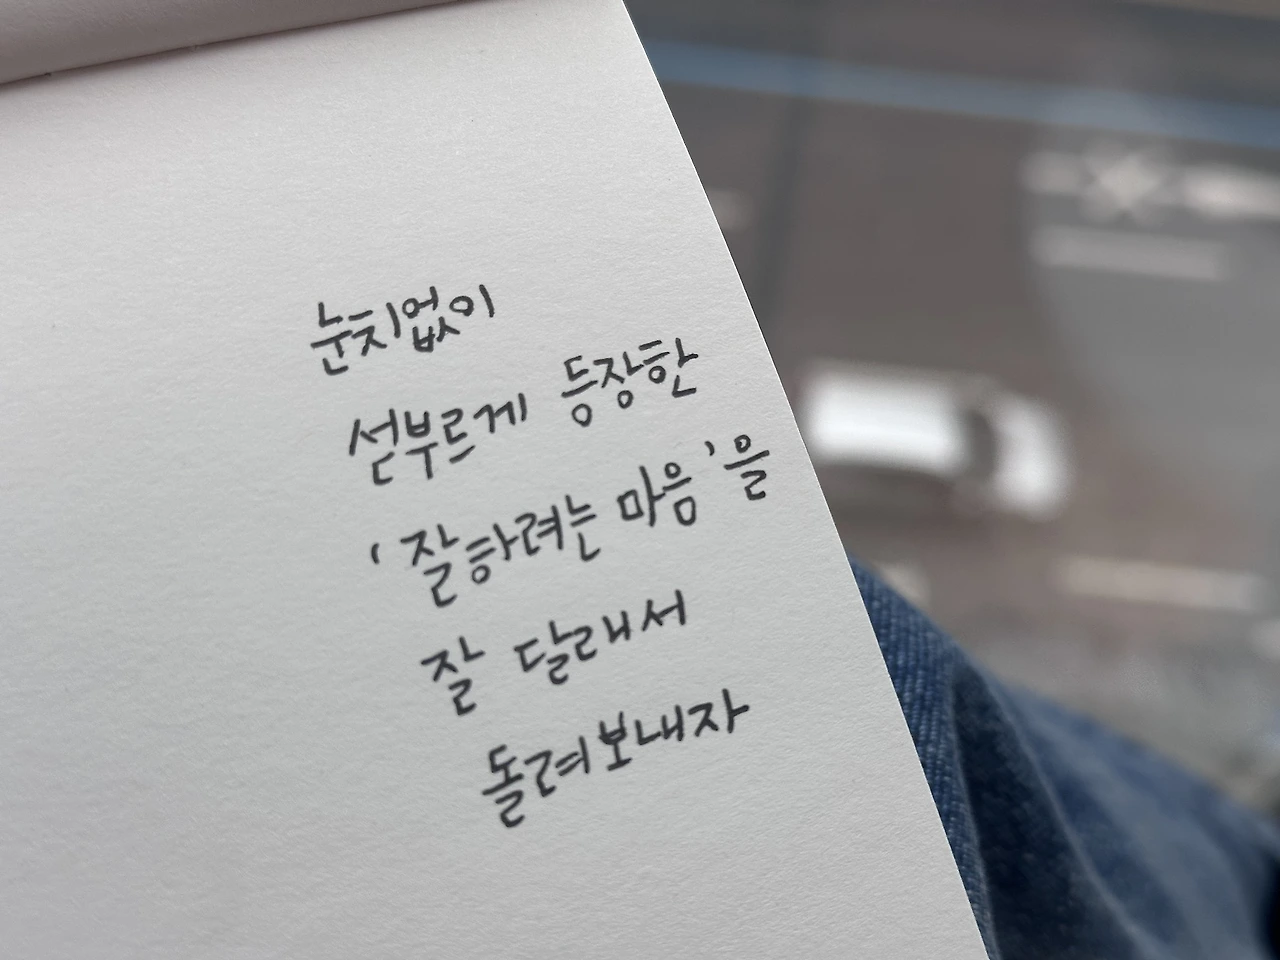 눈치없이
섣부르게 등장한
'잘하려는 마음'을
잘 달래서
돌려보내자